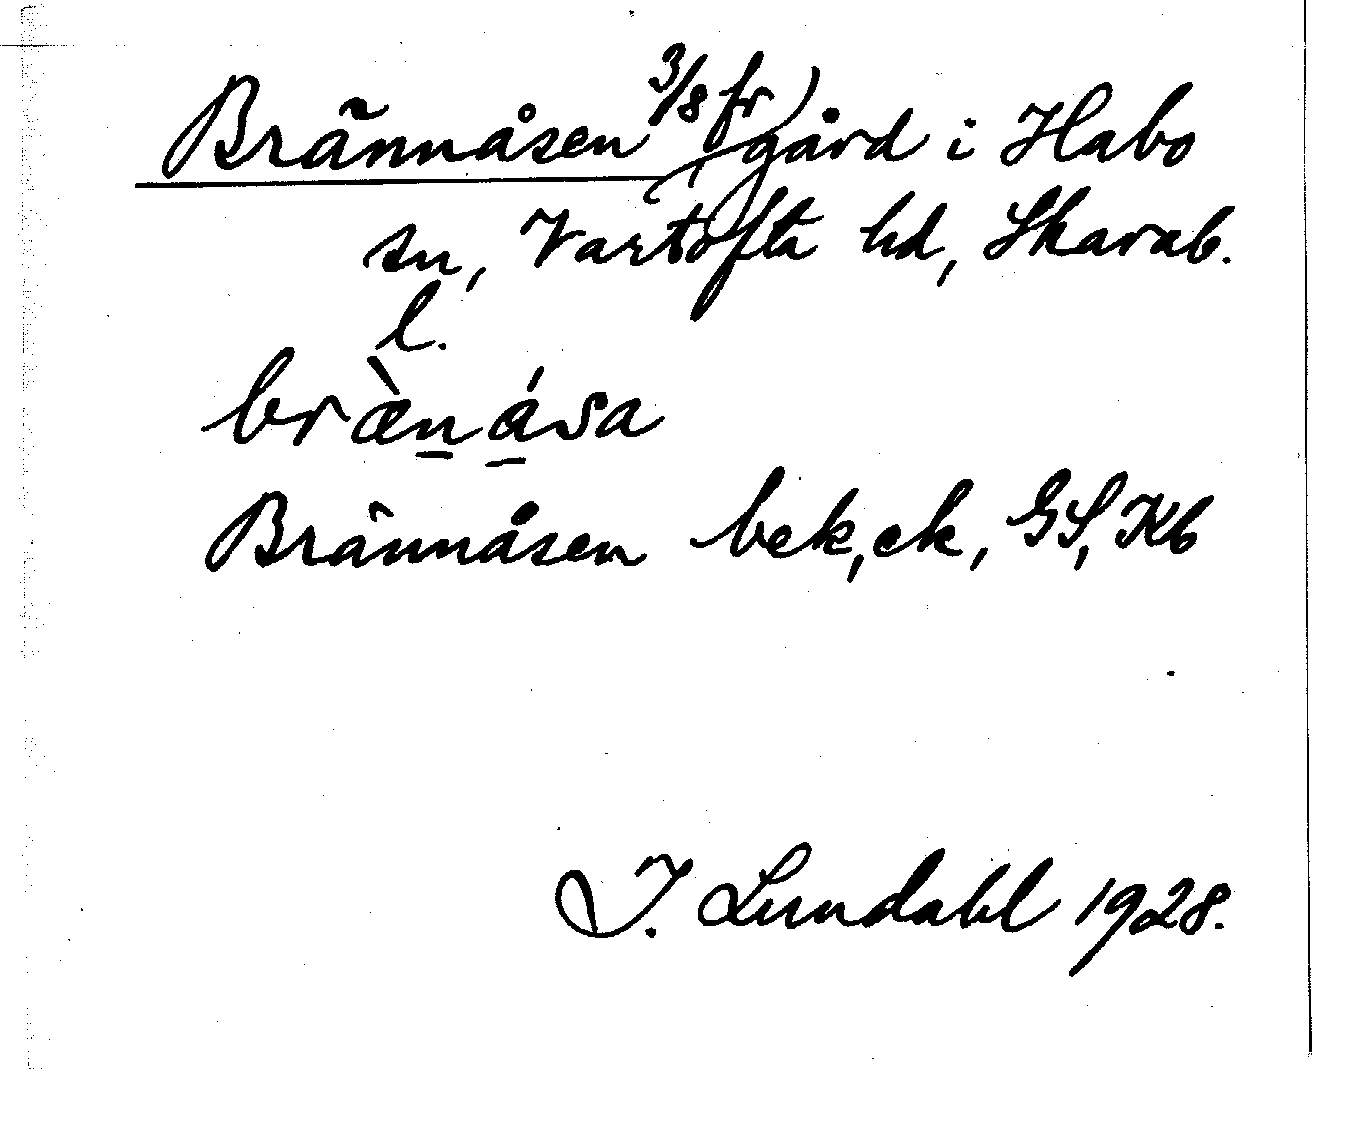 Brännåsen 3/8 fr gård i Habo
sn, Vartofta hd, Skarab.
l.
bræ̀n̲á̲sa
Brännåsen bek, ek, GS, Kb
I. Lundahl 1928.